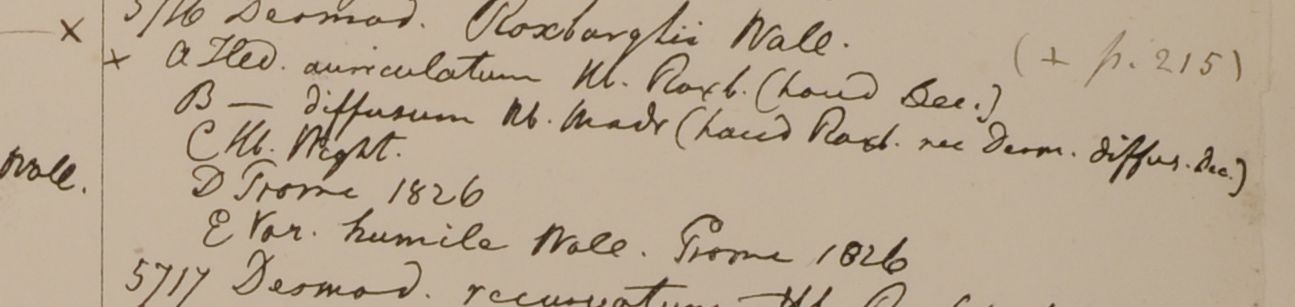 5716 Desmod. Roxburghii Wall.
(+ p. 215)
× × A Hed. auriculatum Hb. Roxb. (haud Dec.)
B — diffusum Hb. Madr (haud Roxb. nec Desm. diffus. Dec.)
C Hb. Wight.
Wall.
D Prome 1826
E Var. humile Wall. Prome 1826
5717 Desmod. recurvatum Hb.